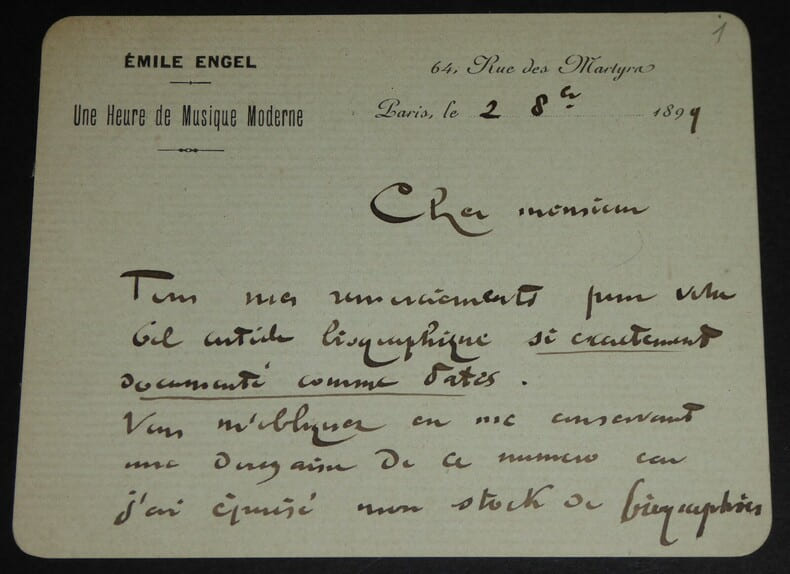 1
ÉMILE ENGEL
64, Rue des Martyrs
Une Heure de Musique Moderne
Paris, le 2 8bre 1899
Cher monsieur
Tous mes remerciements pour votre
bel article biographique si exactement
documenté comme dates.
Vous m'obligerez en me conservant
une douzaine de ce numero car
j'ai épuisé mon stock de biographies